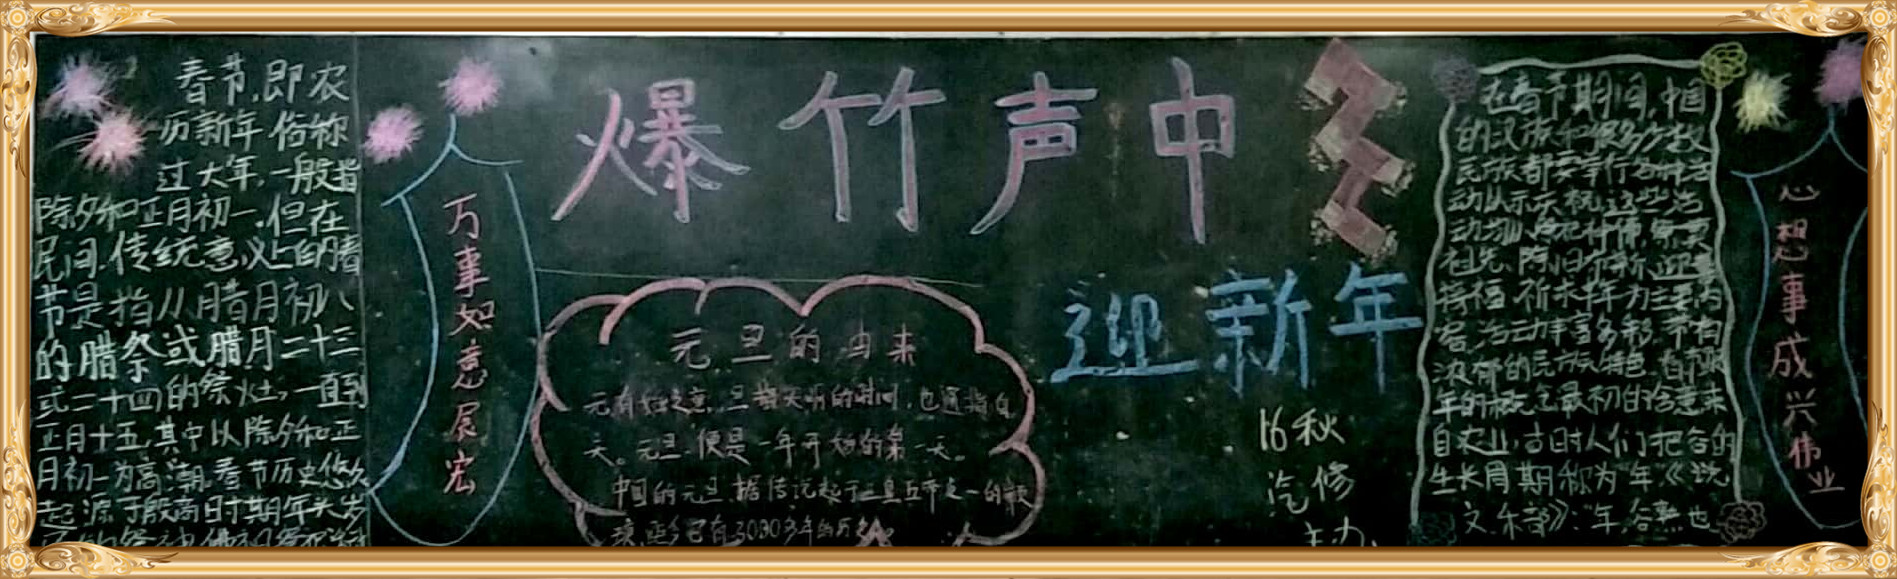 春节,即农
历新年,俗称
过大年,一般指
除夕和正月初一.但在
民间.传统意义上的腊
节是指从腊月初八
的腊祭或腊月二十三
式二十四的祭灶,一直到
正月十五,其中以除夕和正
月初一为高潮.春节历史悠久
起源于殷商时期年头岁
万事如意展宏
爆竹声中
迎新年
元旦的由来
元有始之意,旦指天明的时间,也通指白
天。元旦,便是一年开始的第一天。
中国的元旦,据传说起于三皇五帝之一的
距今已有3000多年的历
16秋
汽修
主办
在春节期间,中国
的汉族和很多少数
民族都要举行各种活
动以示庆祝.这些活
祖先.除旧布新.迎禧
接福.祈求丰年为主要内
容.活动丰富多彩.带有
浓郁的民族特色.
年的概念最初的含意来
自农业,古时人们把谷的
生长周期称为"年"《说
文.禾部》:"年,谷熟也
心想事成兴伟业